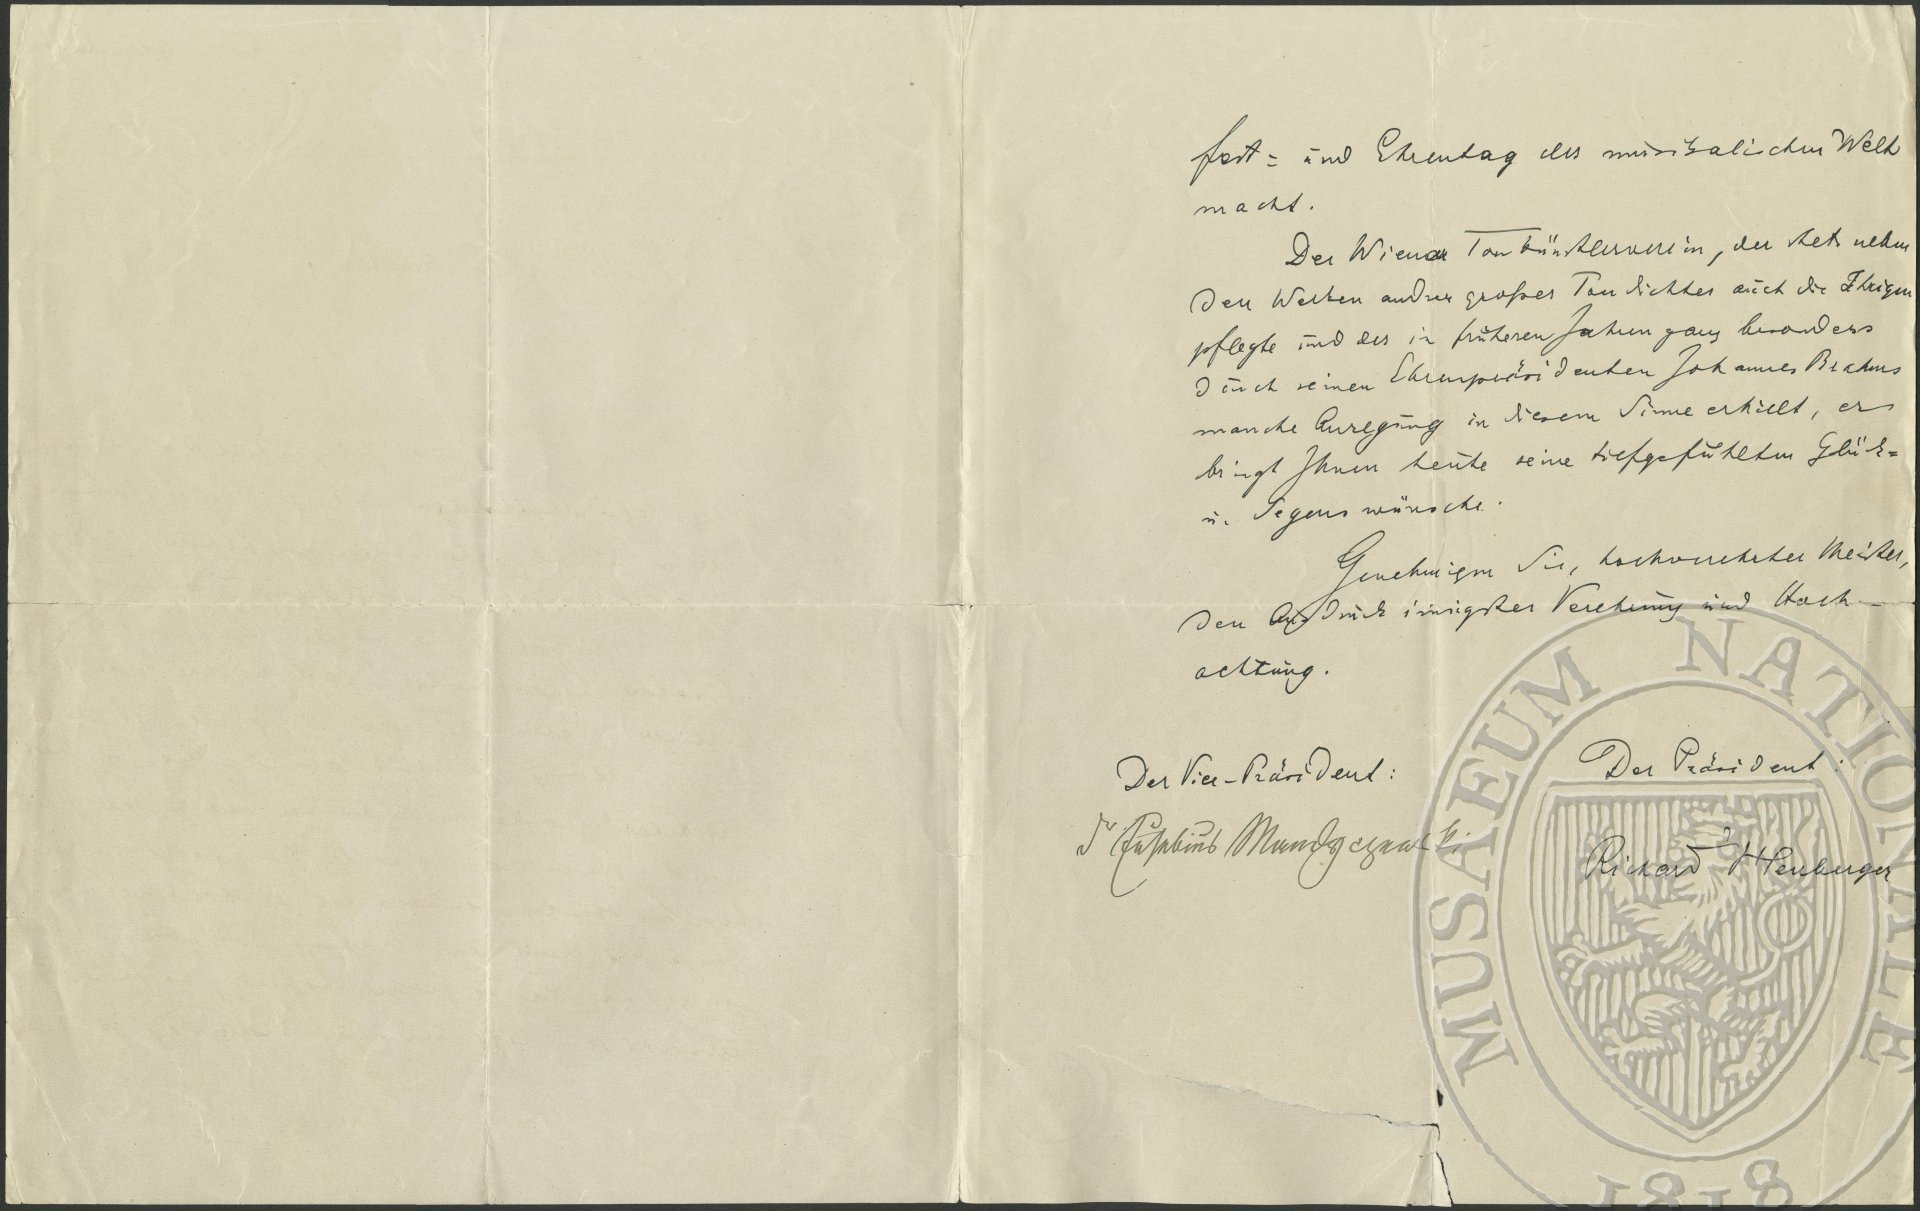 Fest= und Ehrentag der musikalischen Welt
macht.
Der Wiener Tonkünstlerverein, der stets neben
den Werken andrer großer Tondichter auch die Ihrigen
pflegte und der in früheren Jahren ganz besonders
durch seinen Ehrenpräsidenten Johannes Brahms
manche Anregung in diesem Sinne erhielt, er
bringt Ihnen heute seine tiefgefühlten Glück=
u. Segenswünsche.
Genehmigen Sie, hochverehrter Meister,
den Ausdruck innigster Verehrung und Hoch-
achtung.
Der Vice-Präsident:
Dr Eusebius Mandyczewski.
Der Präsident:
Richard Heuberger
MUSAEUM NATIONALE
1818